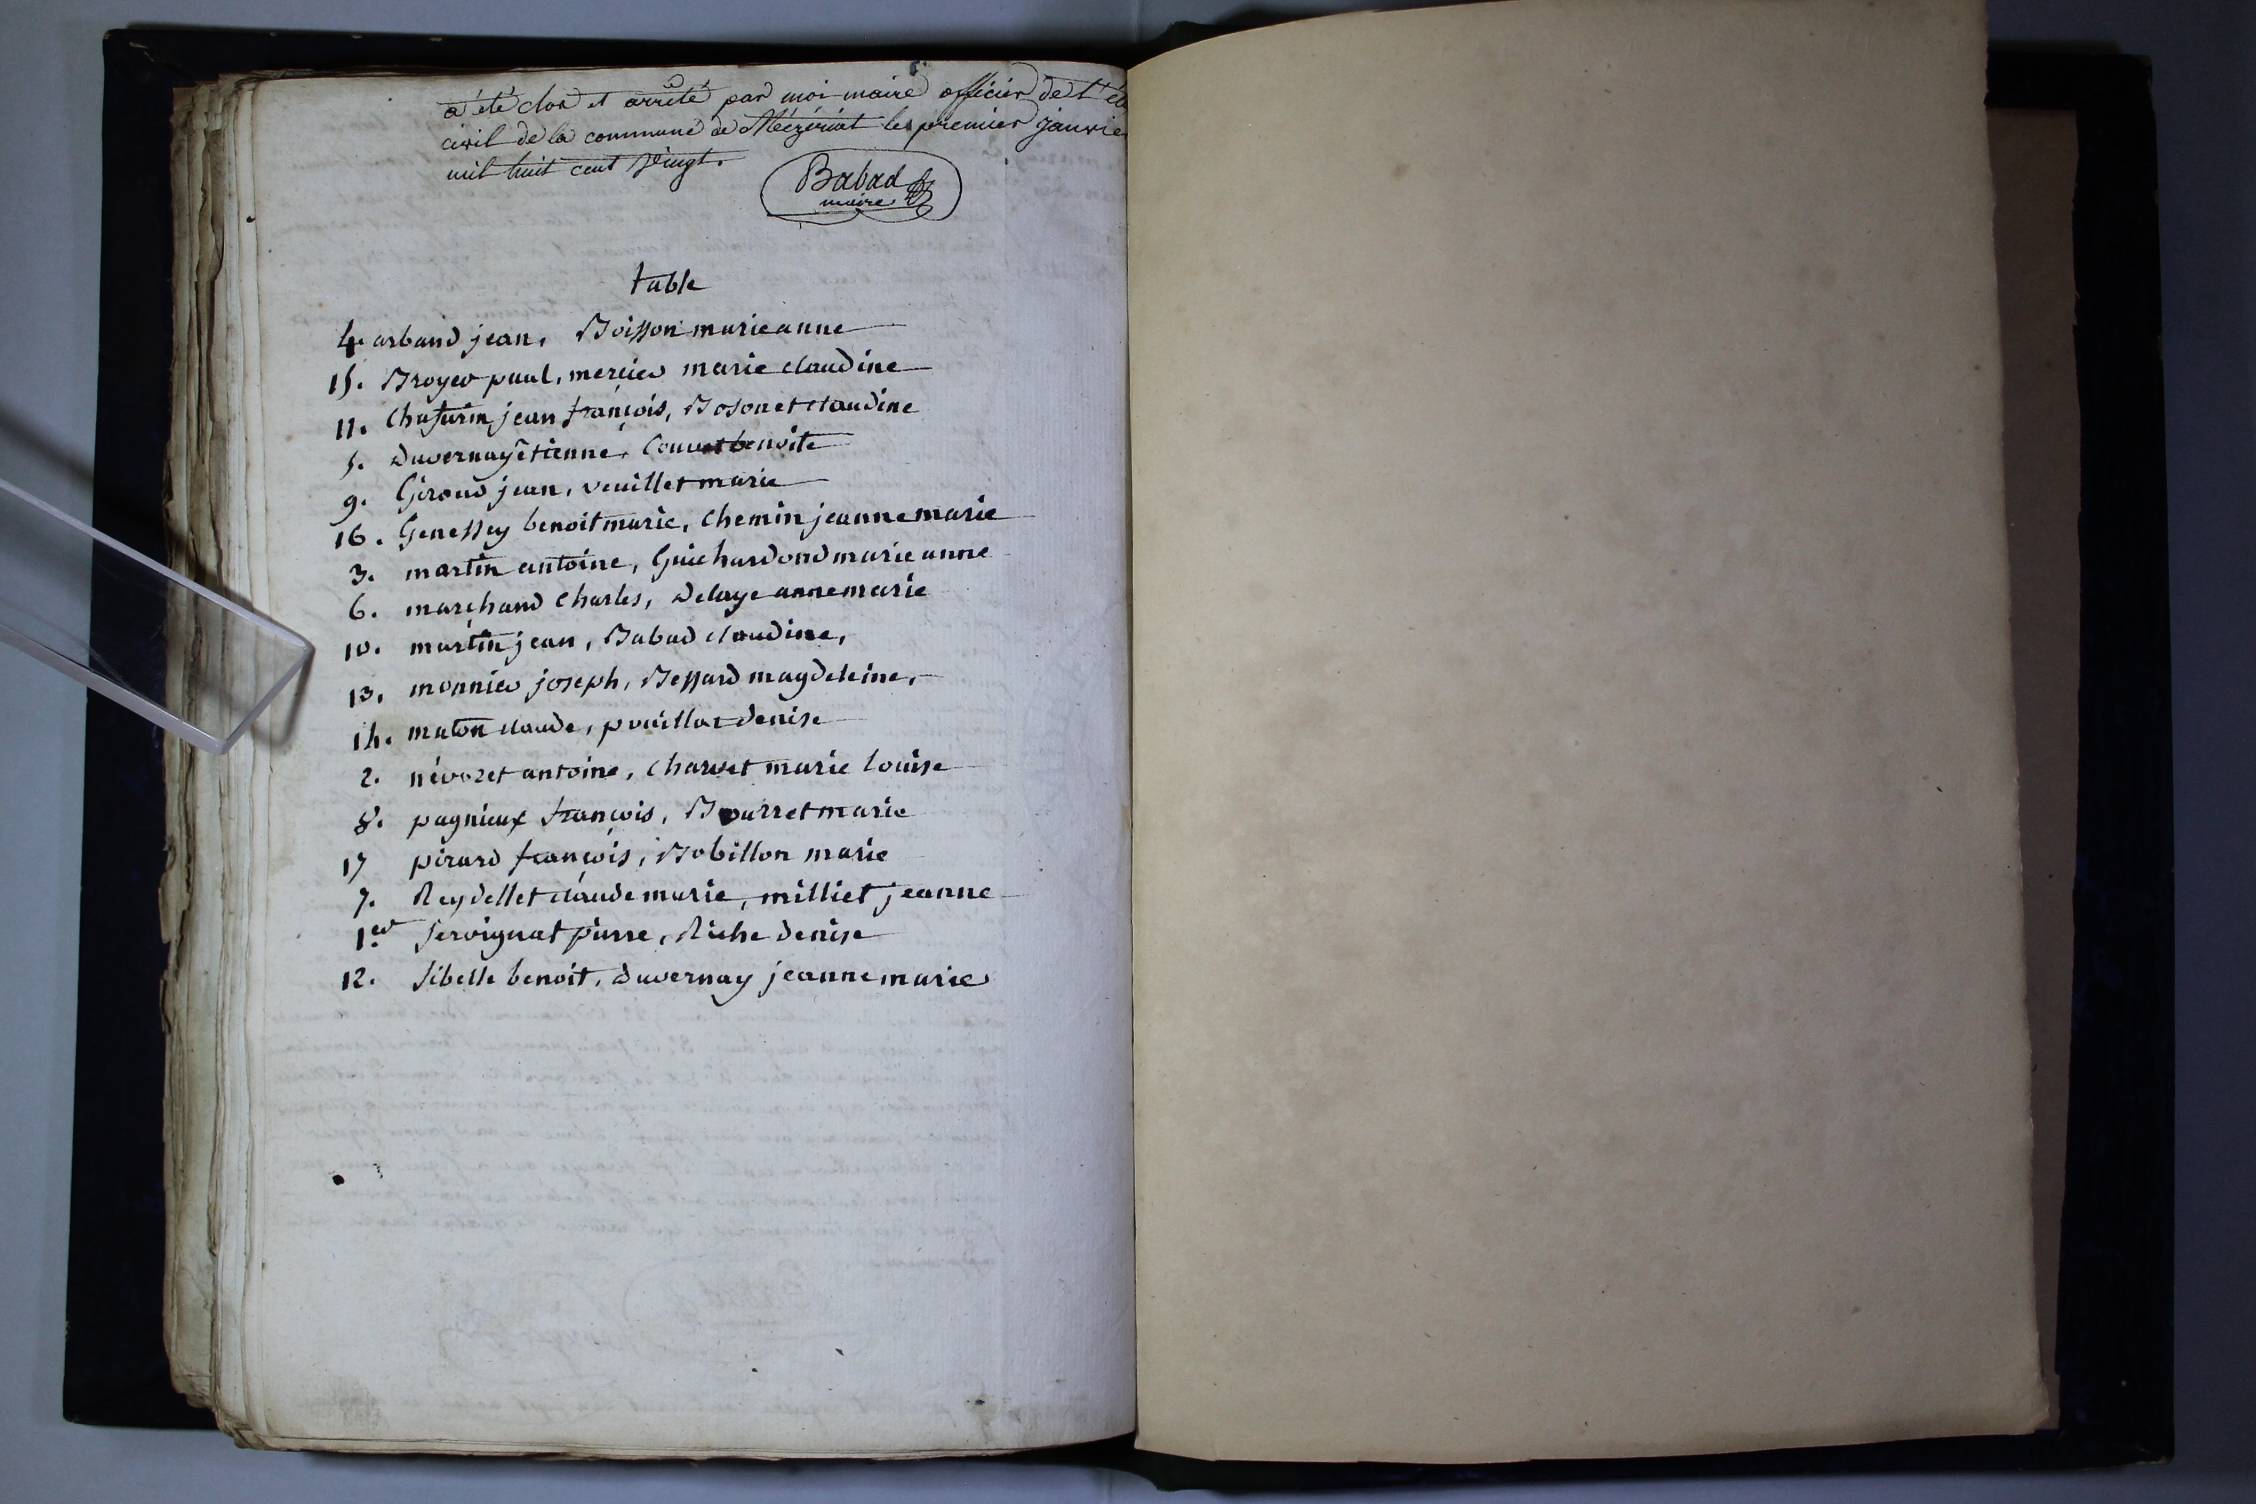 a été clos et arrêté par moi maire officier de l'ét
civil de la commune de Mézériat le premier janvie
mil huit cent vingt.
Babad
maire
table
4. arband jean, Boisson marie anne
15. Broyer paul, mercier marie claudine
11. Chafurin jean françois, Bosonet claudine
5. Duvernay étienne, Couvert benoite
9. Giroud jean, veuillet marie
16. Genessey benoit marie, Chemin jeanne marie
3. martin antoine, Guichardond marie anne
6. marchand Charles, Delaye anne marie
10. martin jean, Babad claudine,
13. monnier joseph, Bessard magdeleine,
14. maton claude, pouillat denise
2. névoret antoine, Charvet marie louise
8. pagnieux françois, Bourret marie
17 pirard françois, Bobillon marie
7. Reydellet claude marie, milliet jeanne
1er Servignat pierre, Riche denise
12. Sibelle benoit, Duvernay jeanne marie